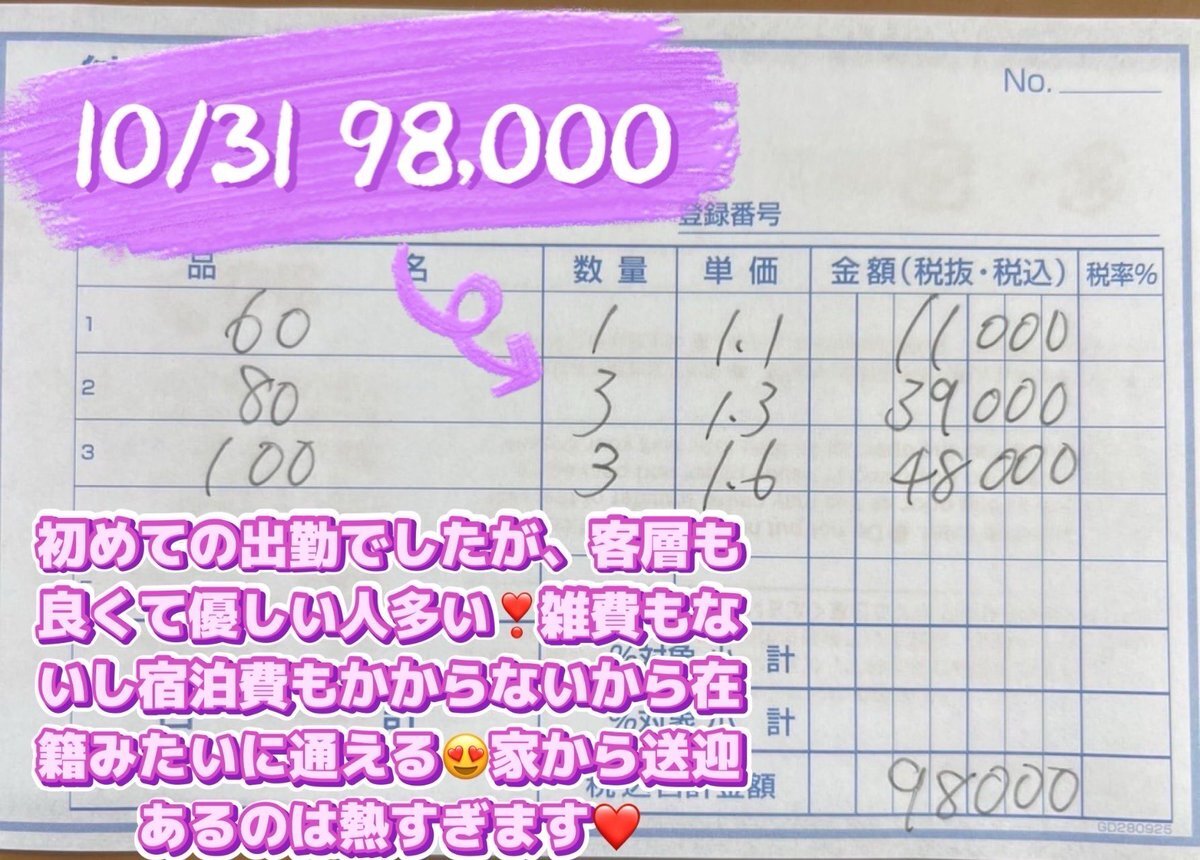 10/31 98,000
No.
登録番号
品 名 数量 単価 金額(税抜・税込) 税率%
1 60 1 1.1 11000
2 80 3 1.3 39000
3 100 3 1.6 48000
初めての出勤でしたが、客層も
良くて優しい人多い❣️雑費もな
いし宿泊費もかからないから在
籍みたいに通える😍家から送迎
あるのは熱すぎます❤️
計
計
金額 98000
GD280925